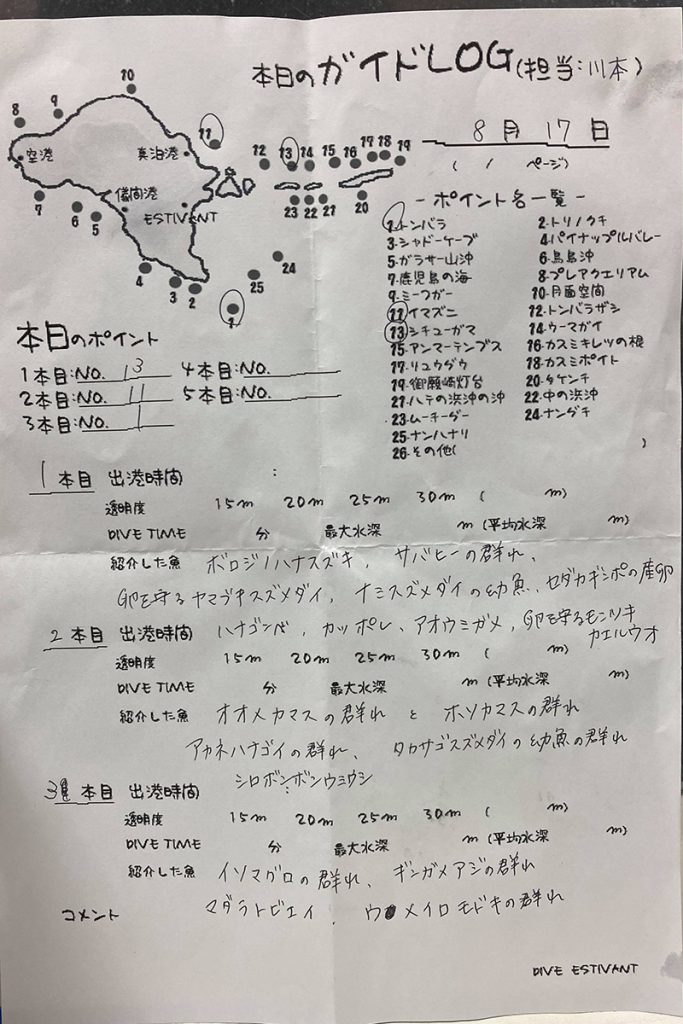 本日のガイドLOG(担当:川本)
8月17日
( / ページ)
10
9
8
空港
真泊港
儀間港
ESTIVANT
7
6
5
4
3
2
11
12
13
14
15
16
17
18
19
23
22
21
20
24
25
1
- ポイント名一覧 -
1.トンバラ 2.トリノクチ
3.シャドーケーブ 4.パイナップルバレー
5.ガラサー山沖 6.鳥島沖
7.鹿児島の海 8.プレアクエリアム
9.ミーフガー 10.月面空間
11.イマズニ 12.トンバラザシ
13.シチューガマ 14.ウーマガイ
15.アンマーテンブス 16.カスミキレツの根
17.リュウダウ 18.カスミポイント
19.御願崎灯台 20.タケンチ
21.ハテの浜沖の沖 22.中の浜沖
23.ムーキーダー 24.ナンダチ
25.ナンハナリ
26.その他( )
本日のポイント
1本目:NO. 13 4本目:NO.
2本目:NO. 11 5本目:NO.
3本目:NO. 1
1本目 出港時間 :
透明度 15m 20m 25m 30m ( m)
DIVE TIME 分 最大水深 m (平均水深 m)
紹介した魚 ボロジノハナスズキ、サバヒーの群れ、
卵を守るヤマブキスズメダイ、ナミスズメダイの幼魚、セダカギンポの産卵
2本目 出港時間 ハナゴンベ、カッポレ、アオウミガメ、卵を守るモンツキ
カエルウオ
透明度 15m 20m 25m 30m ( m)
DIVE TIME 分 最大水深 m (平均水深 m)
紹介した魚 オオメカマスの群れ と ホソカマスの群れ
アカネハナゴイの群れ、タカサゴスズメダイの幼魚の群れ
シロボンボンウミウシ
3本目 出港時間 :
透明度 15m 20m 25m 30m ( m)
DIVE TIME 分 最大水深 m (平均水深 m)
紹介した魚 イソマグロの群れ、ギンガメアジの群れ
マダラトビエイ、ウメイロモドキの群れ
コメント
DIVE ESTIVANT